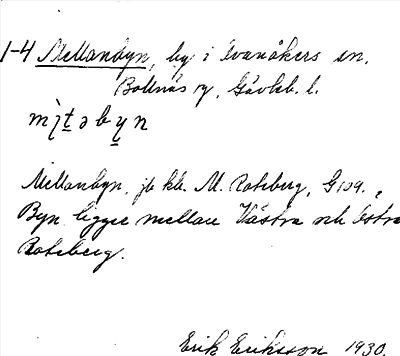 1-4 Mellanbyn, by i Svanåkers sn.
Bollnäs sg, Gävleb. l.
Mellanbyn, jb kb. M. Roteberg, G 109.,
Byn ligger mellan Västra och östra
Roteberg.
Erik Eriksson 1930.